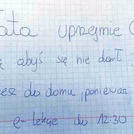 ata uprzejmie
ę abyś się nie darł
esz do domu, ponieważ
e-lekcje do 12:30